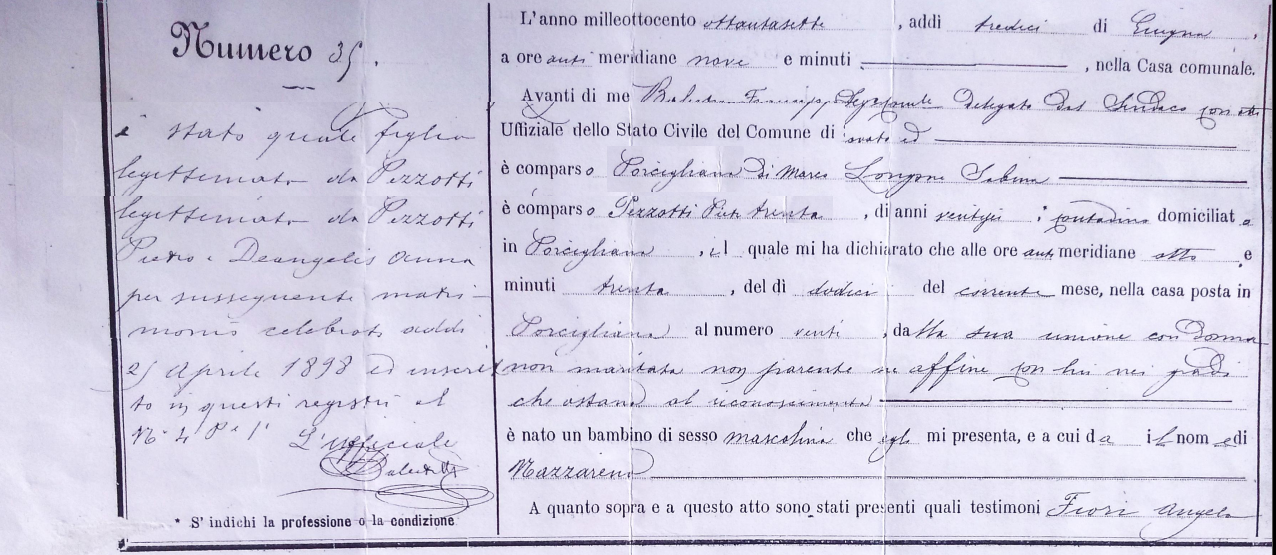 Numero 35.
è stato quale figlio
legittimato da Pezzotti
legittimato da Pezzotti
Pietro e Deangelis Anna
per susseguente matri-
monio celebrato addì
25 Aprile 1898 ed inscrit
to in questi registri al
N. 4 P. 1ª
L'Ufficiale
* S' indichi la professione o la condizione
L'anno milleottocento ottantasette , addì tredici di Giugno ,
a ore anti meridiane nove e minuti , nella Casa comunale.
Avanti di me Segretario delegato dal Sindaco con atto
Uffiziale dello Stato Civile del Comune di
è comparso Porcigliano di Marco Longone Sabina
è comparso Pezzotti trenta , di anni ventisei , contadino domiciliato
in Porcigliano , il quale mi ha dichiarato che alle ore anti meridiane otto e
minuti trenta , del dì dodici del corrente mese, nella casa posta in
Porcigliano al numero venti , dalla sua unione con donna
non maritata non parente nè affine con lui nei gradi
che ostano al riconoscimento
è nato un bambino di sesso mascolino che egli mi presenta, e a cui dà il nome di
Nazzareno
A quanto sopra e a questo atto sono stati presenti quali testimoni Fiori Angelo